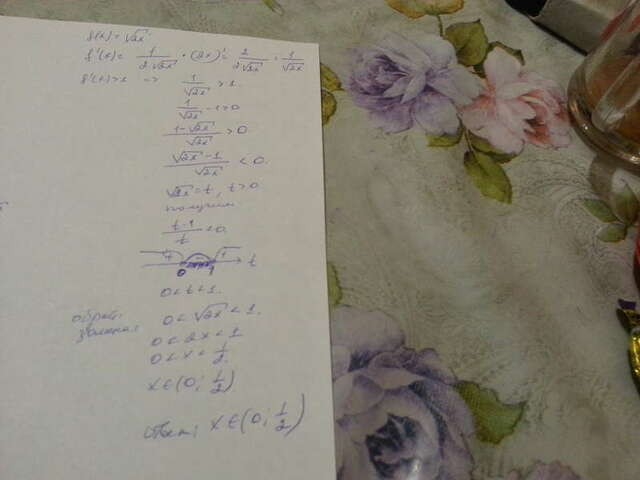 f(x) = √2x
f'(x) = 1/(2√2x) · (2x)' = 2/(2√2x) = 1/√2x
f'(x) > 1 => 1/√2x > 1.
1/√2x - 1 > 0
(1-√2x)/√2x > 0.
(√2x-1)/√2x < 0.
√2x = t, t > 0
получим
(t-1)/t < 0
+ - + 0 1 t
0 < t < 1.
обрат. замена: 0 < √2x < 1.
0 < 2x < 1
0 < x < 1/2.
x ∈ (0; 1/2)
Ответ: x ∈ (0; 1/2)